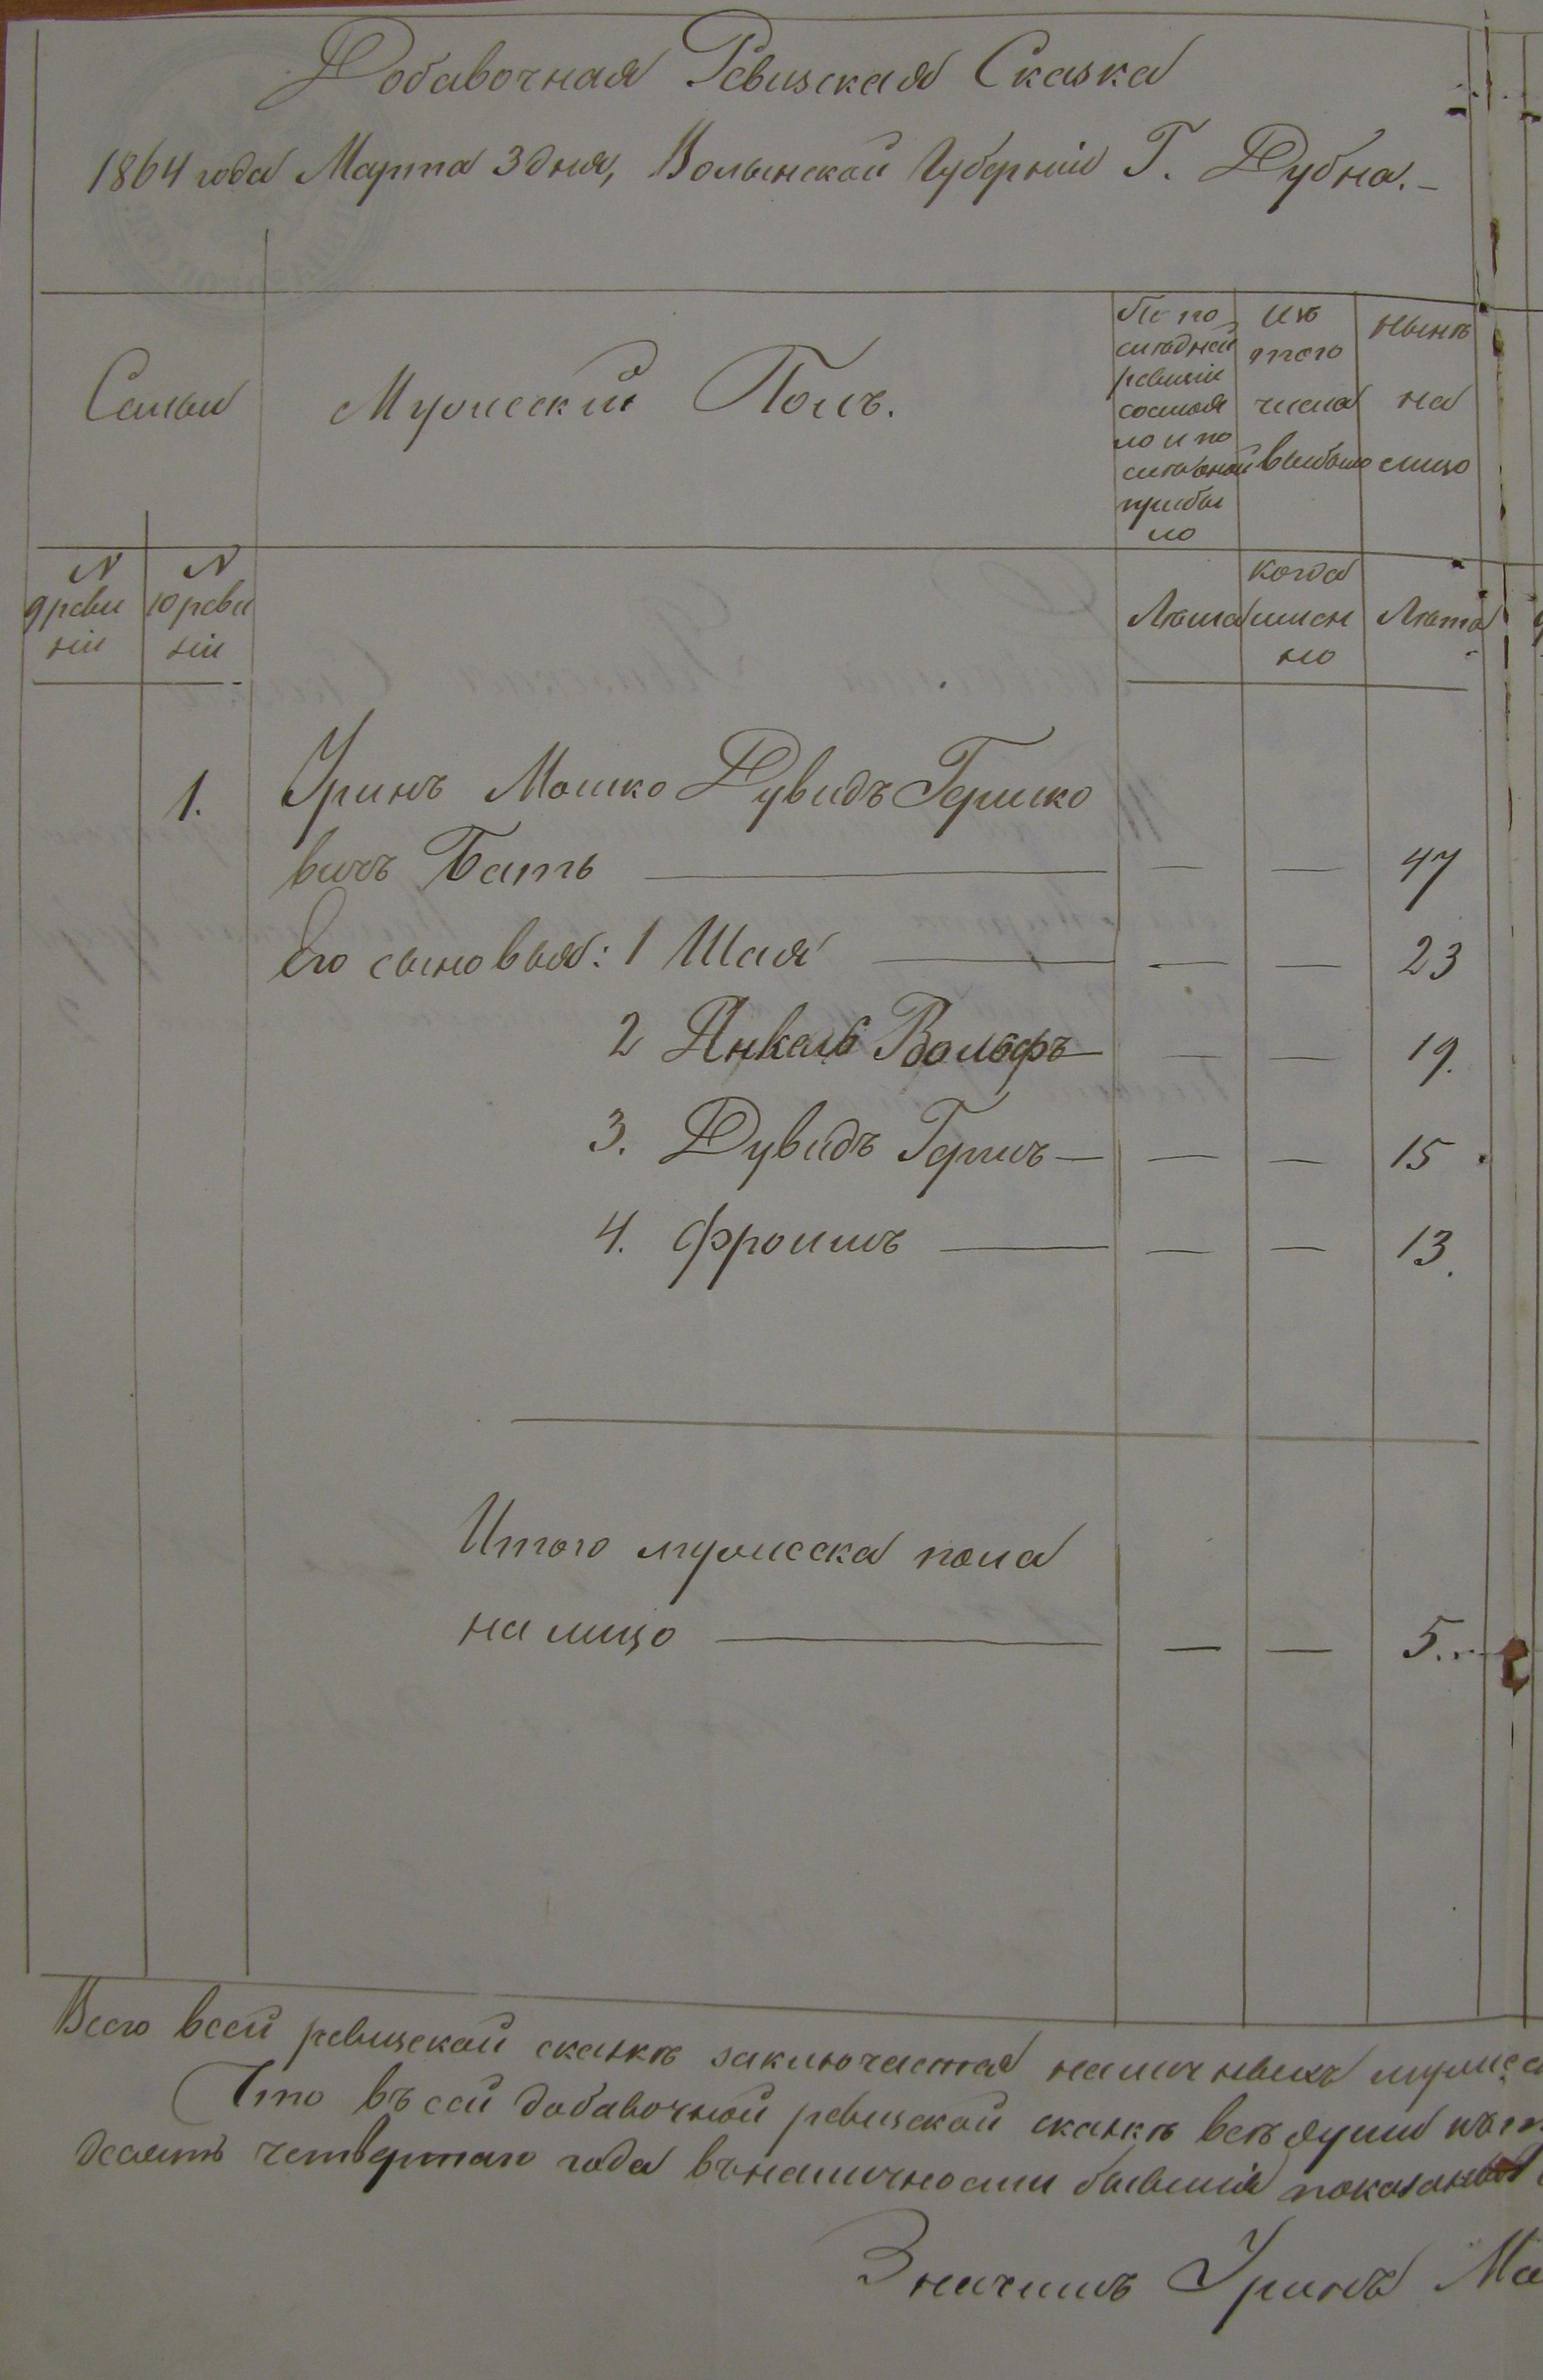 Добавочная Ревизская Сказка
1864 года Марта 3 дня, Волынской Губерніи Г. Дубна.-
Семьи
Мужескій Полъ.
По по
слѣдней
ревизіи
состоя
ло и по
слѣ оной
прибы
ло
Изъ
этого
числа
выбыло
Нынѣ
на
лицо
N
9 реви
зіи
N
10 реви
зіи
Лѣта
когда
имен
но
Лѣта
1. Уринъ Мошко Дувидъ Гершко
вичъ Бать — — — 47
Его сыновья: 1 Шая — — — 23
2 Янкель Вольфъ — — — 19.
3. Дувидъ Гершъ — — — 15
4. Фроимъ — — — 13.
Итого мужеска пола
на лицо — — — 5.
Всего всей ревизской сказкѣ заключается наличныхъ мужеса
Что въ сей добавочной ревизской сказкѣ всѣ души
десять четвертаго года въ наличности бывшія показаны
Уринъ Мо